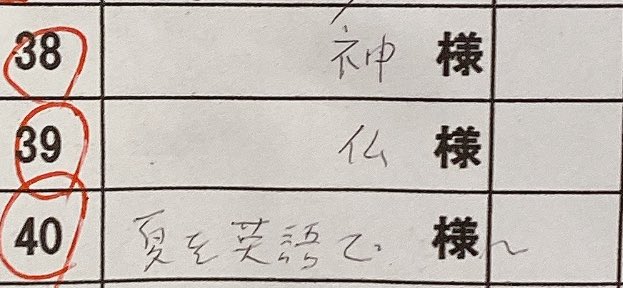 38 神 様
39 仏 様
40 夏を英語で 様〜